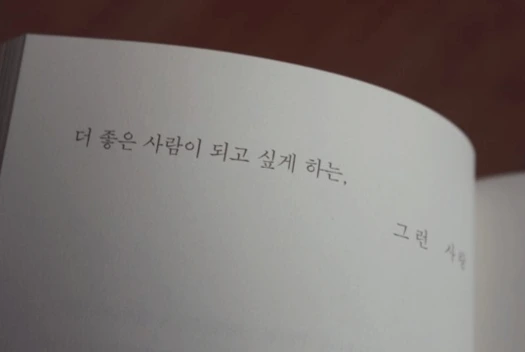 더 좋은 사람이 되고 싶게 하는,
그런